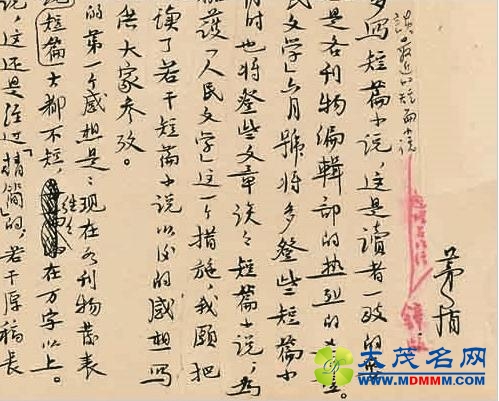 茅盾
談最近的短篇小说
多写短篇小说,这是读者一致的要
是各刊物编辑部的热烈的
民文学」六月號将多登些短篇小
时也将登些文章谈谈短篇小说,为
護「人民文学」这一个措施,我願把
读了若干短篇小说以後的感想写
供大家参攷。
的第一个感想是:现在各刊物發表
短篇大都不短,往往在万字以上。
说,这还是经过「精简」的,若干原稿长
大茂名网
WWW.MDMMM.COM